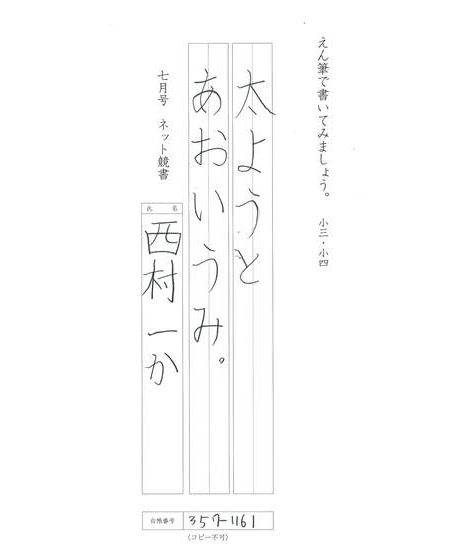 えん筆で書いてみましょう。 小三・小四
太ようと
あおいうみ。
七月号 ネット競書
氏名
西村一か
台帳番号 357-1161
(コピー不可)